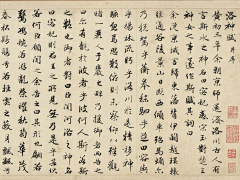 洛神賦 并序
黃初三年余朝京師還濟洛川古人有
言斯水之神名曰宓妃感宋玉對楚王
神女之事遂作斯賦其詞曰
余從京師言歸東藩背伊闕越轘轅
經通谷陵景山日既西傾車殆馬煩爾
乃稅駕乎蘅皋秣駟乎芝田容與
乎楊林流眄乎洛川於是精移神駭
忽焉思散俯則未察仰以殊觀
睹一麗人于巖之畔乃援御者而告之
曰爾有覿於彼者乎彼何人斯若此
之豔也御者對曰臣聞河洛之神名
曰宓妃然則君王之所見無乃是乎其
狀若何臣願聞之余告之曰其形也翩若
驚鴻婉若游龍榮曜秋菊華茂
春松髣髴兮若輕雲之蔽月飄飖兮